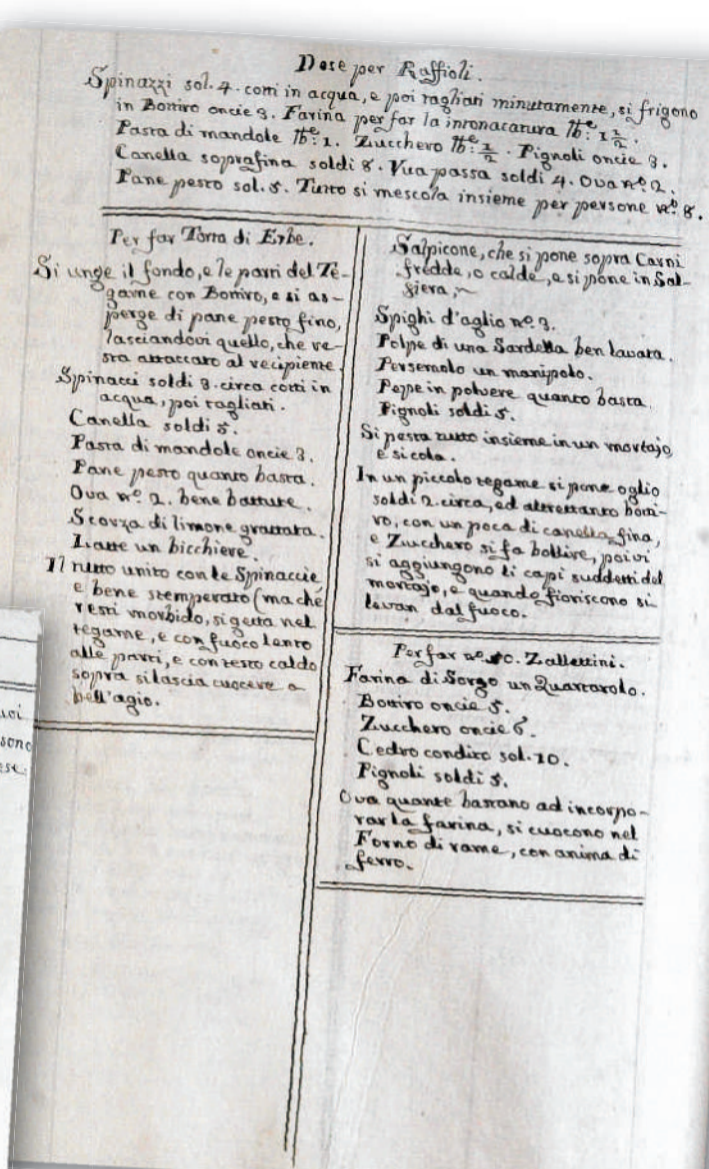 Dose per Raffioli.
Spinazzi sol. 4. cotti in acqua, e poi tagliati minutamente, si frigono
in Bottiro oncie 3. Farina per far la intonacatura lb.e: 1 1/2.
Pasta di mandole lb.e: 1. Zucchero lb.e: 1/2. Pignoli oncie 3.
Canella soprafina soldi 8. Vua passa soldi 4. Ova nº. 2.
Pane pesto sol. 5. Tutto si mescola insieme per persone nº. 8.
Per far Torta di Erbe.
Si unge il fondo, e le parti del Te-
game con Bottiro, e si as-
perge di pane pesto fino,
lasciandovi quello, che re-
sta attaccato al recipiente.
Spinacci soldi 3. circa cotti in
acqua, poi tagliati.
Canella soldi 5.
Pasta di mandole oncie 3.
Pane pesto quanto basta.
Ova nº. 2. bene battute.
Scorza di limone grattata.
Latte un bicchiere.
Il tutto unito con le Spinaccie
e bene stemperato (ma chè
resti morbido, si getta nel
tegame, e con fuoco lento
alle parti, e con testo caldo
sopra si lascia cuocere a
bell'agio.
Salpicone, che si pone sopra Carni
fredde, o calde, e si pone in Sal-
siera,
Spighi d'aglio nº. 3.
Polpe di una Sardella ben lavata.
Persemolo un manipolo.
Pepe in polvere quanto basta.
Pignoli soldi 5.
Si pesta tutto insieme in un mortajo,
e si cola.
In un piccolo tegame si pone oglio
soldi 2. circa, ed altrettanto botti-
ro, con un poca di canella fina,
e Zucchero si fa bollire, poi vi
si aggiungono li capi suddetti del
mortajo, e quando fioriscono si
levan dal fuoco.
Per far nº. 50. Zallettini.
Farina di Sorgo un Quartarolo.
Bottiro oncie 5.
Zucchero oncie 6.
Cedro condito sol. 10.
Pignoli soldi 5.
Ova quante bastano ad incorpo-
rar la farina, si cuocono nel
Forno di rame, con anima di
ferro.
sono